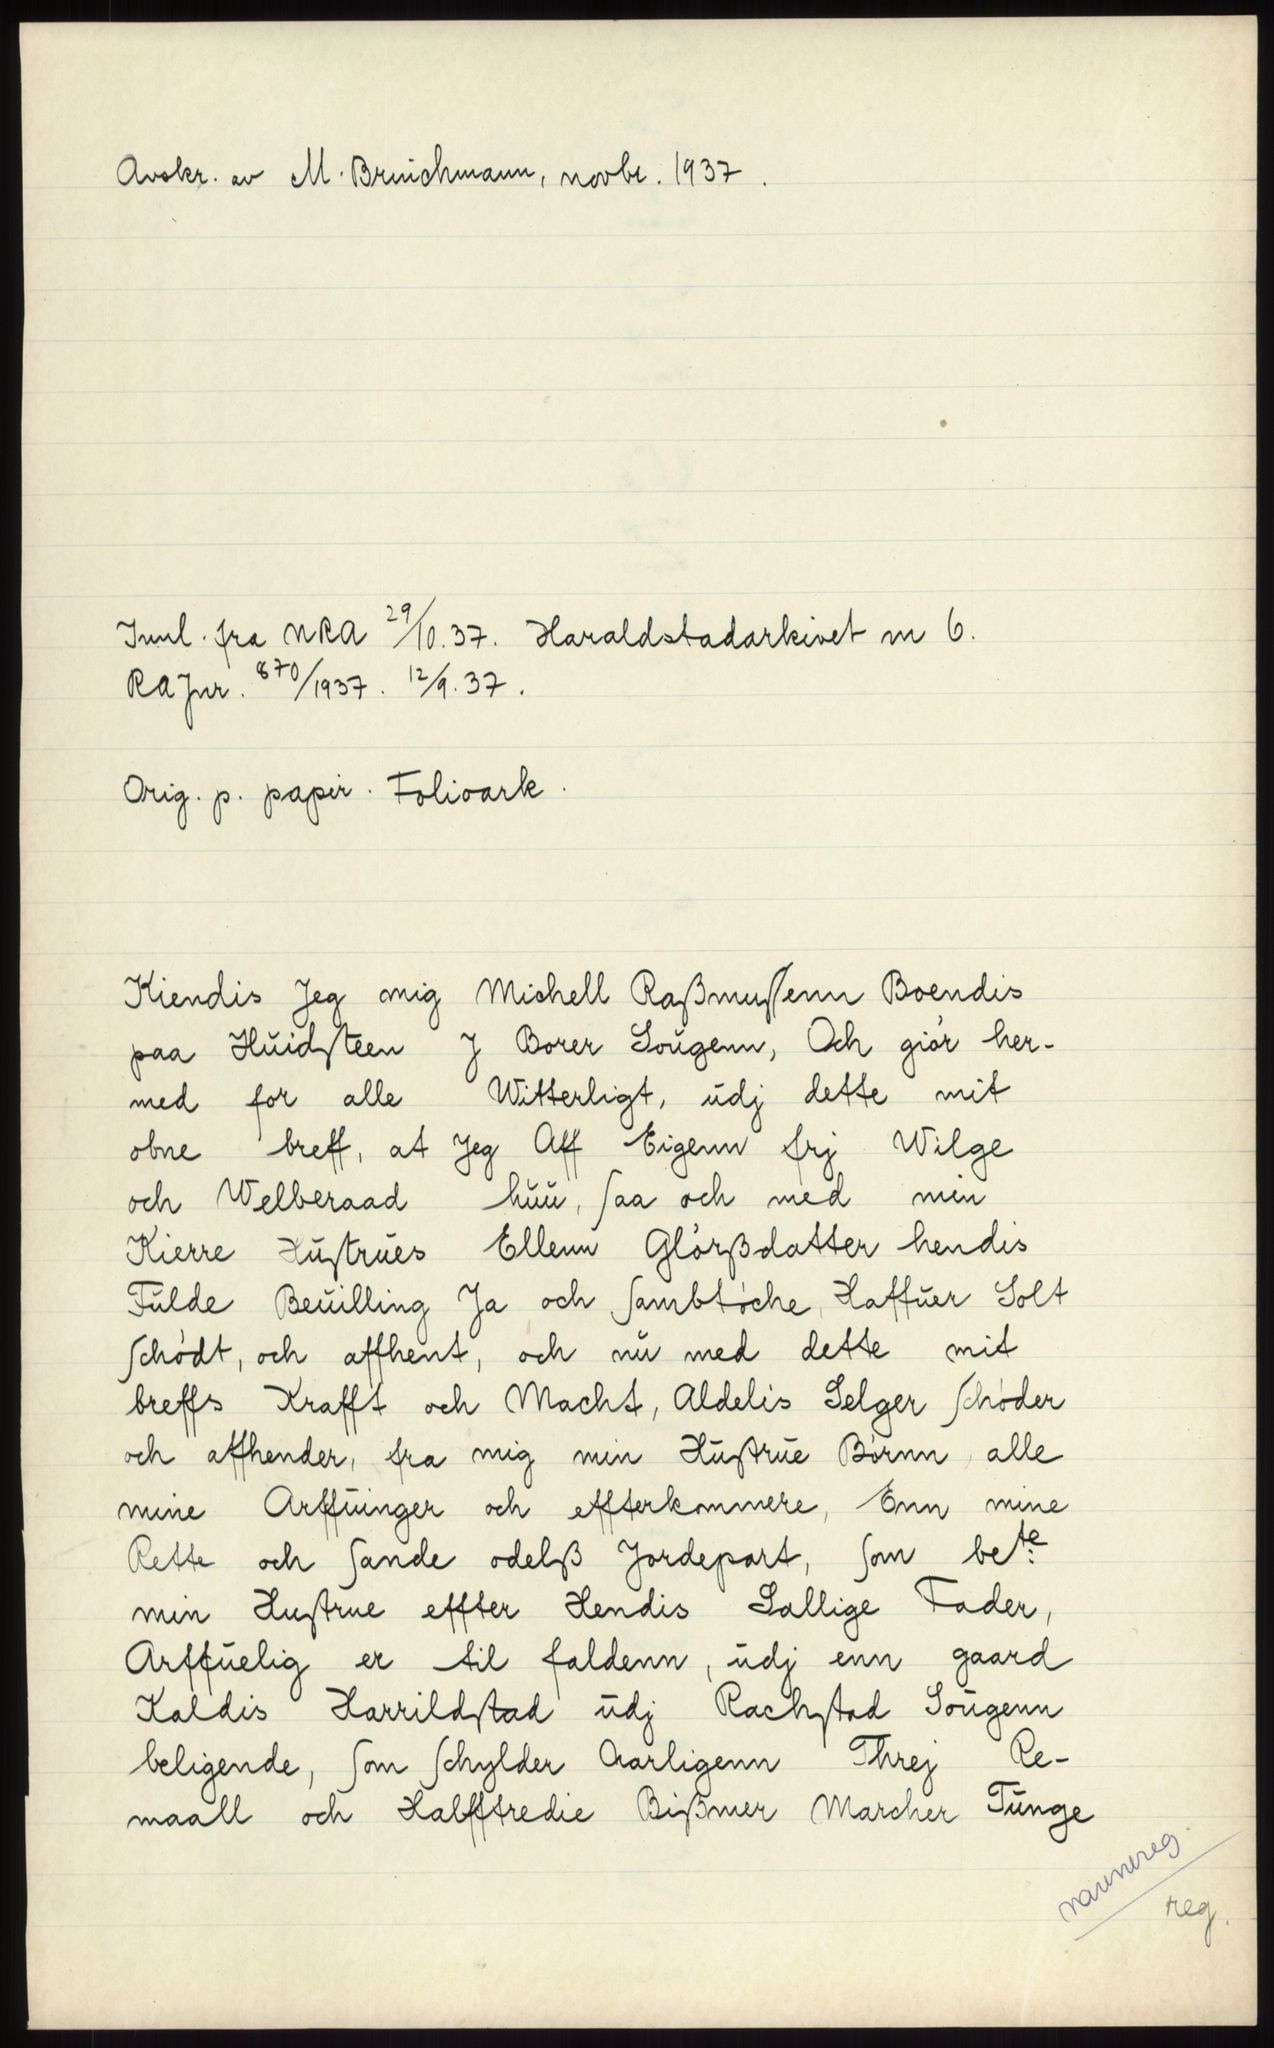 Avskr. av M. Brinchmann, novbr. 1937.
Innl. fra NRA 29/10.37. Haraldstadarkivet nr 6.
RA Jnr. 870/1937. 12/9.37.
Orig. p. papir. Folioark.
Kiendis Jeg mig Michell Raßmusßenn Boendis
paa Huidsteen J Borer Sougenn, Och giör her-
med for alle Witterligt, udj dette mit
obne breff, at Jeg Aff Eigenn frj Wilge
och Welberaad huu, saa och med min
Kierre Hustrues Ellenn Glörßdatter hendis
Fulde Beuilling Ja och sambtöche, Haffuer Solt
schödt, och affhent, och nu med dette mit
breffs Krafft och Macht, Aldelis Selger schöder
och affhender, fra mig min Hustrue Börnn, alle
mine Arffuinger och effterkommere, Enn mine
Rette och sande odelß Jordepart, som bete:
min Hustrue effter Hendis Sallige Fader,
Arffuelig er til faldenn, udj enn gaard
Kaldis Harrildstad udj Rachstad Sougenn
beligende, som schylder Aarligenn Threj Re-
maall och Halfftredie Bißmer Marcher Tunge
navnereg.
reg.